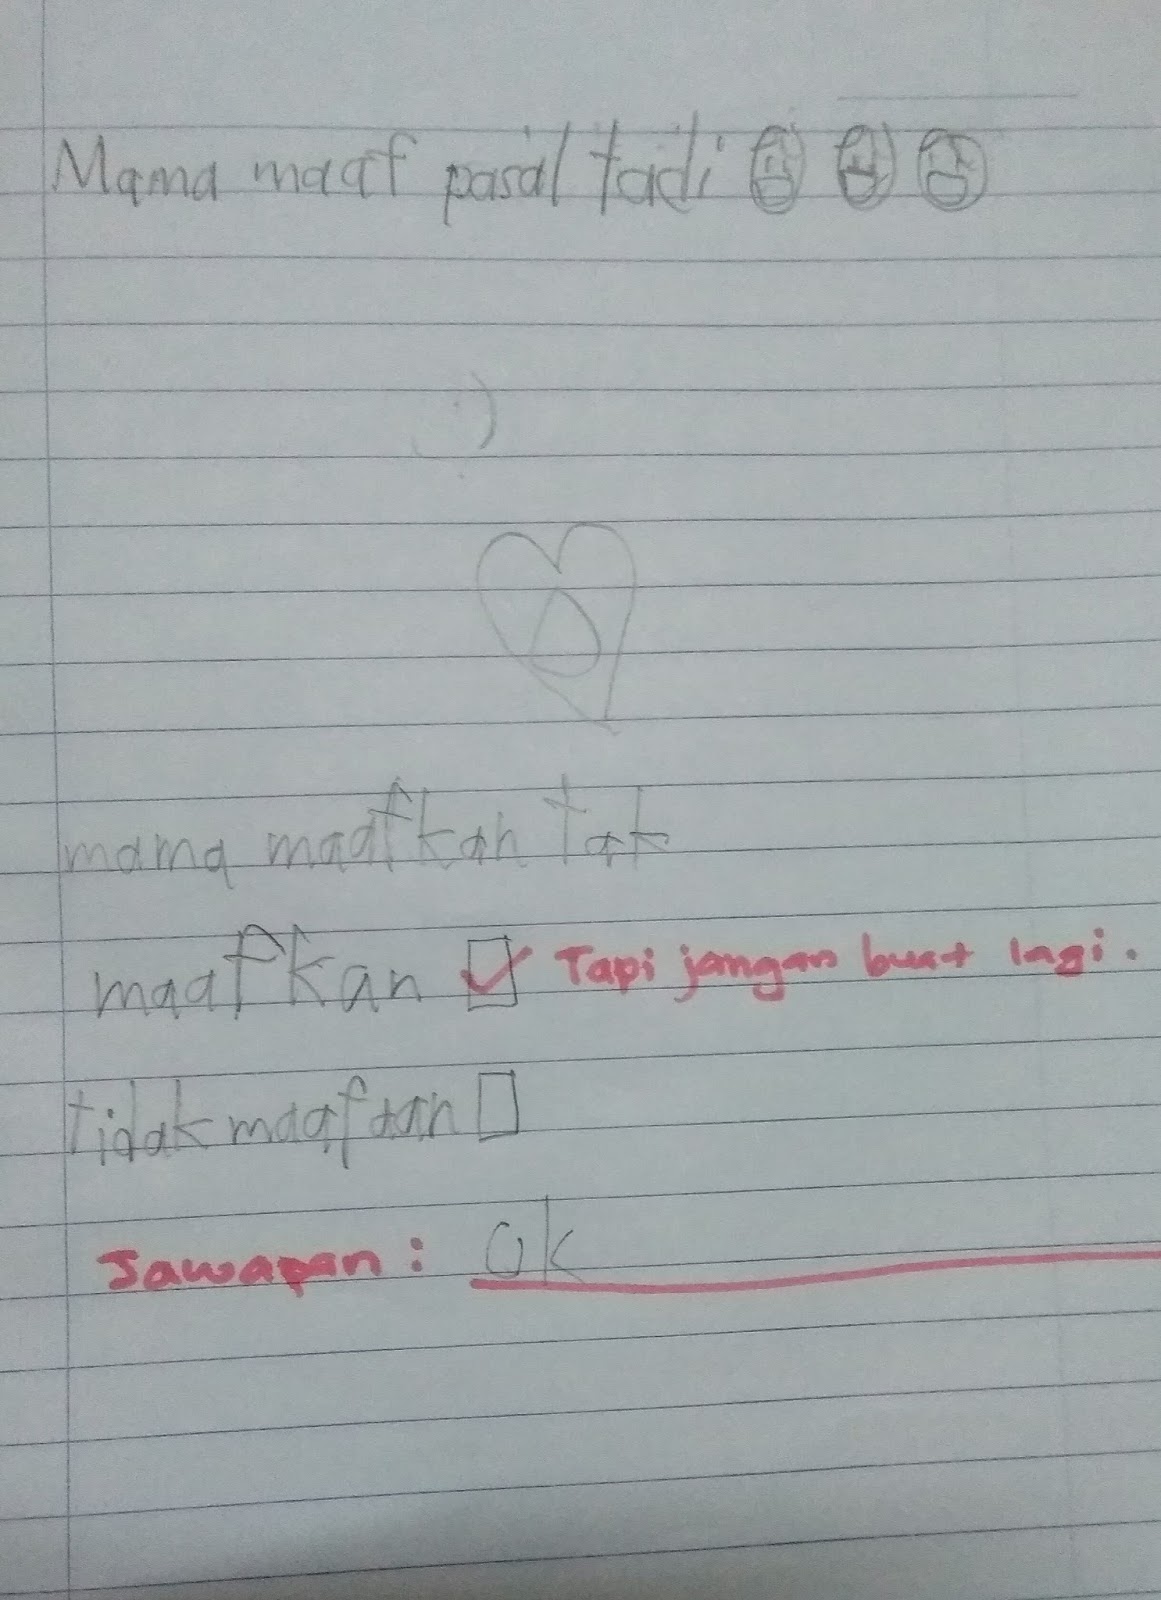 Mama maaf pasal tadi
mama maafkan tak
maafkan Tapi jangan buat lagi.
tidak maafaan
Jawapan: Ok